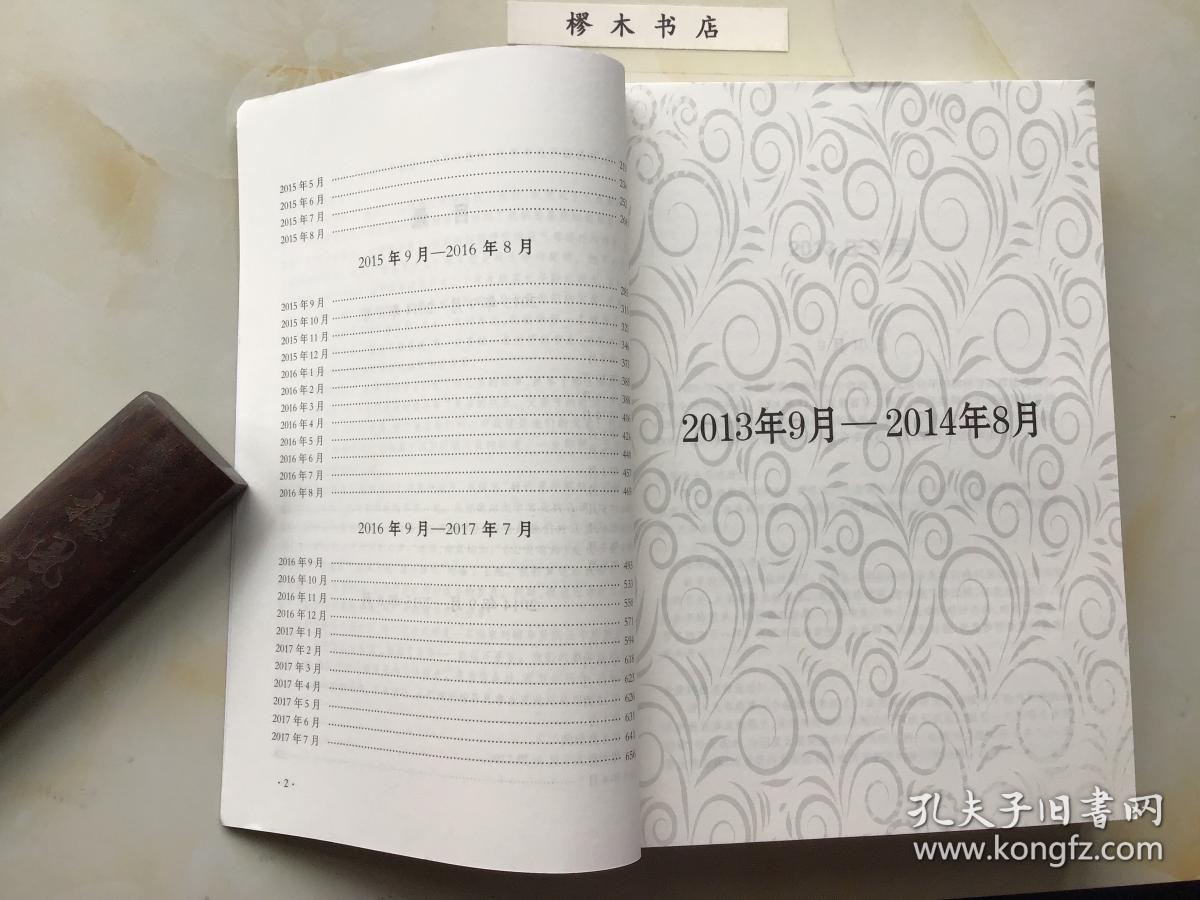 樛木书店
2015年5月
2015年6月 234
2015年7月 252
2015年8月
2015年9月—2016年8月
2015年9月
2015年10月
2015年11月 323
2015年12月 346
2016年1月 372
2016年2月 385
2016年3月 398
2016年4月
2016年5月 424
2016年6月 440
2016年7月 457
2016年8月
2016年9月—2017年7月
2016年9月 493
2016年10月 533
2016年11月 558
2016年12月 571
2017年1月 594
2017年2月 618
2017年3月 623
2017年4月 626
2017年5月 631
2017年6月 641
2017年7月 656
·2·
2013年9月—2014年8月
孔夫子旧书网
www.kongfz.com